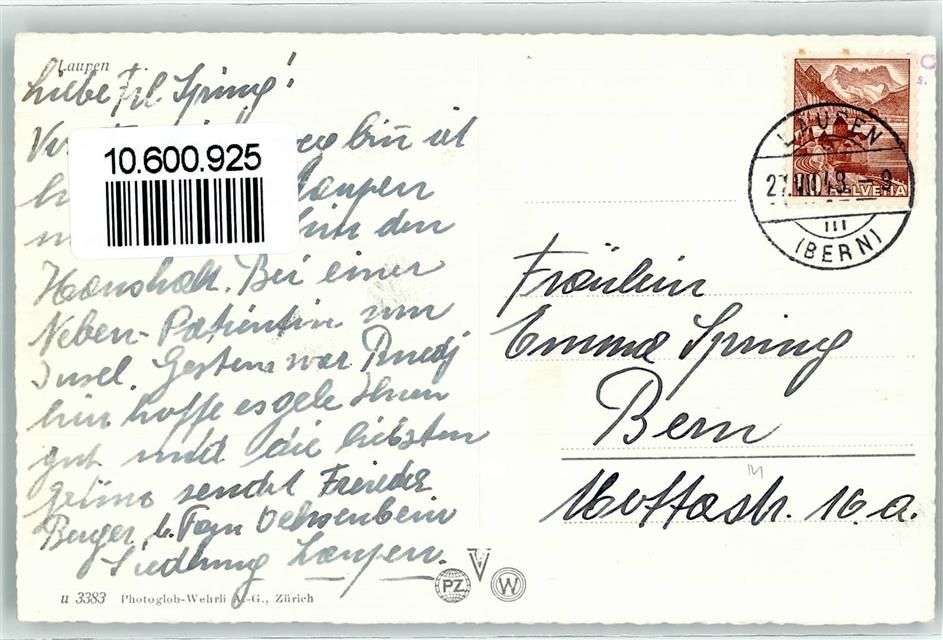 Laupen
Liebe Frl. Spring!
bin ist
Laupen
hin den
Haushalt. Bei einer
Neben-Patientin
Insel. Gestern war Ruedj
hir hoffe es gehe Ihnen
gut und die liebsten
Grüsse sendet
Berger, b. Fam Ochsenbein
Siedlung Laupen.
10.600.925
LAUPEN
27.VII.43 - 9
III
(BERN)
10 HELVETIA
Fräulein
Emma Spring
Bern
Mottastr. 16.a.
u 3383 Photoglob-Wehrli A.-G., Zürich
PZ V W